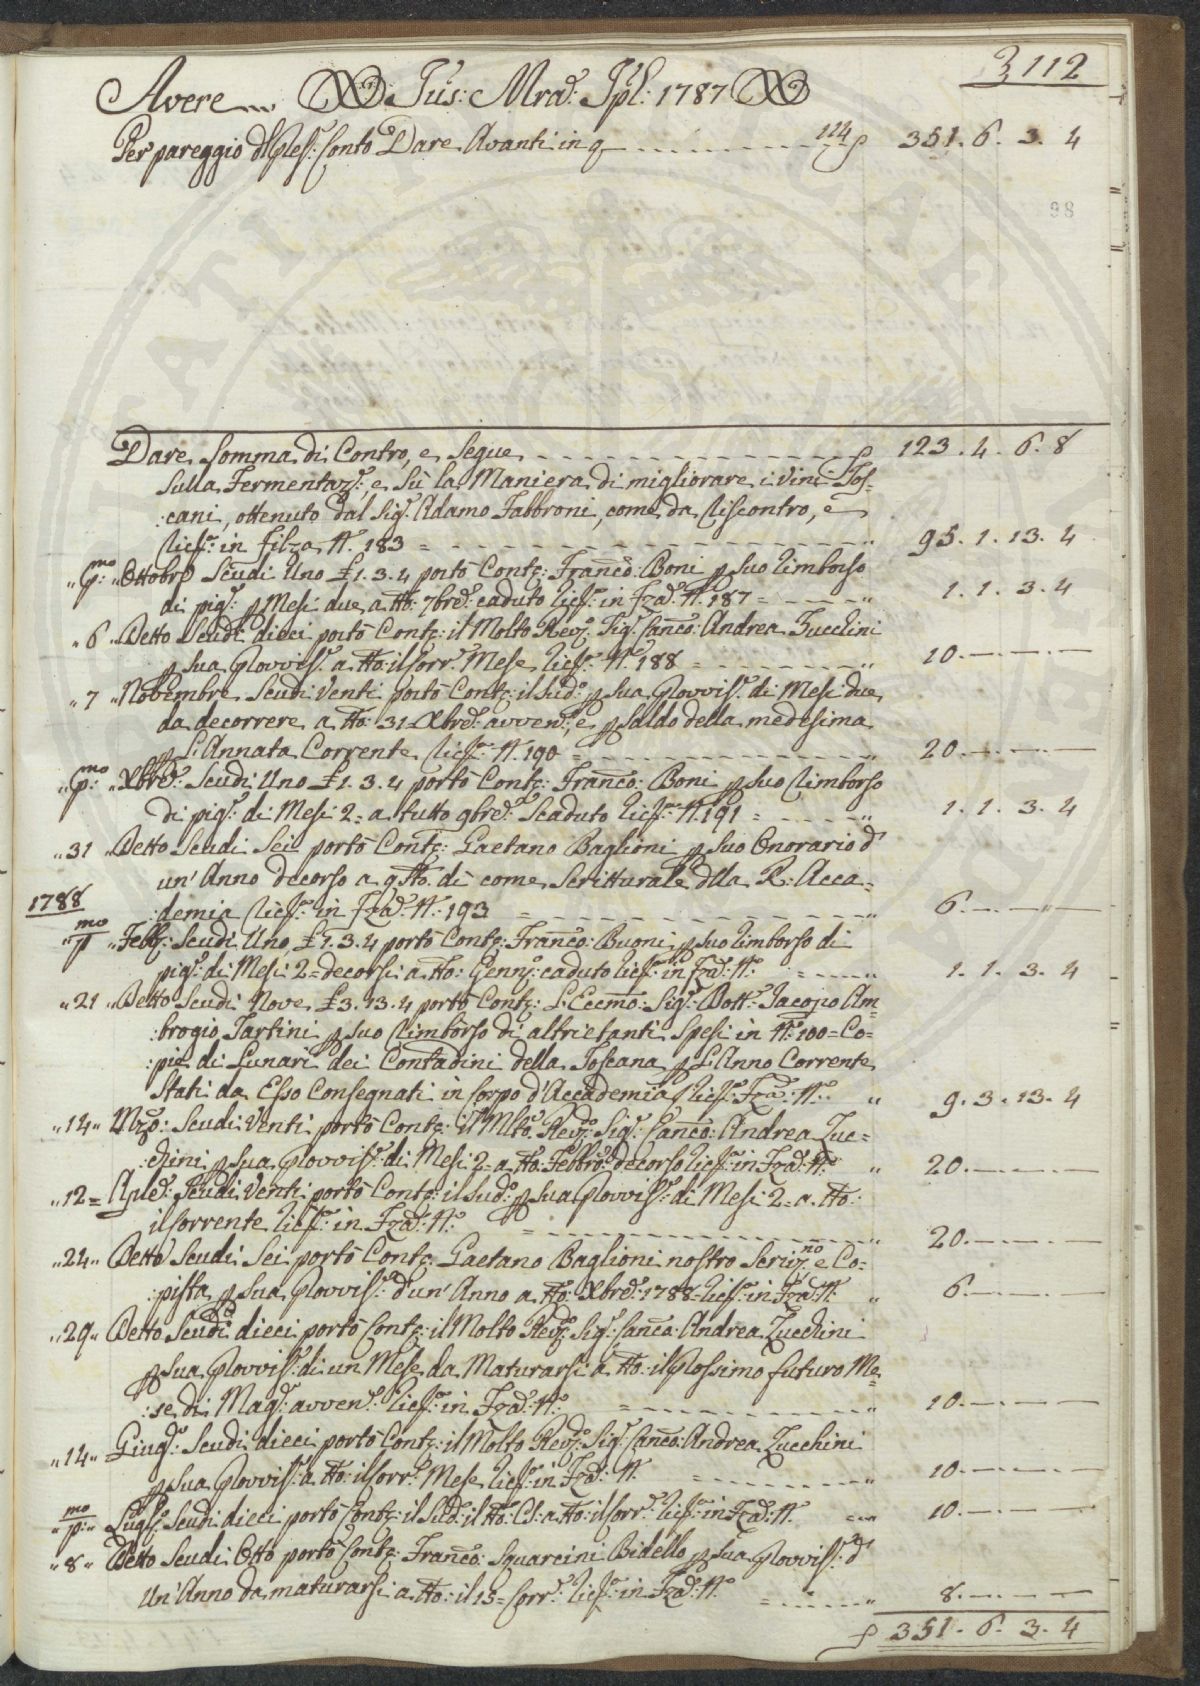 112
Avere Jus: Mrad. Jpl: 1787
Per pareggio d Pres: Conto Dare Avanti in 114 351. 6. 3. 4
98
Dare Somma di Contro, e Segue 123. 4. 6. 8
Sulla Fermentaz: e Sù la Maniera di migliorare i Vini Tos=
:cani, ottenuto dal Sig: Adamo Fabbroni, come da Riscontro, e
Ricev: in filza N. 183 = " 95. 1. 13. 4
" p:mo " Ottobre Scudi Uno £ 1. 3. 4 portò Conti: Franco: Boni p suo rimborso
di pig: p Mesi due a tto: 7bre: caduto Ricev: in Fza N. 187 = " 1. 1. 3. 4
" 6 " Detto Scudi dieci portò Conti: il Molto Rev: Sig: Canco: Andrea Zucchini
p sua Provvis: a tto: il Corr: Mese Ricev: N. 188 = " 10. — . — . —
" 7 " Novembre Scudi Venti portò Conti: il Sud: p sua Provvis: di Mesi due
da decorrere a tto: 31 Xbre: avven: e p Saldo della medesima
p L'Annata Corrente Ricev: N. 190 " 20. — . — . —
" p:mo " Xbre: Scudi Uno £ 1. 3. 4 portò Conti: Franco: Boni p suo Rimborso
di pig: di Mesi 2 = a tutto 9bre: Scaduto Ricev: N. 191 = " 1. 1. 3. 4
" 31 " Detto Scudi Sei portò Conti: Gaetano Baglioni p suo Onorario d
un' Anno decorso a q.sto dì come Scritturale dlla R: Acca=
1788
:demia Ricev: in Fza: N: 193 = " 6. — . — " —
" p mo " Febb: Scudi Uno £ 1. 3. 4 portò Conti: Franco: Buoni p suo rimborso di
pig: di Mesi 2 = decorsi a tto: Genn: caduto Ricev: in Fza: N: = " 1. 1. 3. 4
" 21 " Detto Scudi Nove £ 3. 13. 4 portò Conti: L'Eccmo: Sig: Dott: Jacopo Am=
:brogio Tartini p suo Rimborso di altrietanti Spesi in N: 100 = Co=
:pie di Lunari dei Contadini della Toscana p L'Anno Corrente
Stati da Esso Consegnati in Corpo d'Accademia Ricev: Fza: N: " 9. 3. 13. 4
" 14 " Mzo: Scudi Venti portò Conti: il Mlto: Rev: Sig: Canco: Andrea Zuc=
:chini p sua Provvis: di Mesi 2 = a tto: Febbro: decorso Ricev: in Fza: N: " 20. — . — . —
" 12 = Aple: Scudi Venti portò Conti: il Sud: p sua Provvis: di Mesi 2 = a tto:
il Corrente Ricev: in Fza: N: = " 20. — . — . —
" 24 " Detto Scudi Sei portò Conti: Gaetano Baglioni nostro Scriv:no e Co=
:pista p sua Provvis: d'un' Anno a tto: Xbre: 1788 Ricev: in Fza: N: " 6. — . — . —
" 29 " Detto Scudi dieci portò Conti: il Molto Rev: Sig: Canco: Andrea Zucchini
p sua Provvis: di un Mese da Maturarsi a tto: il Prossimo futuro Me=
:se di Mag: avven: Ricev: in Fza: N: = " 10. — . — . —
" 14 " Giug: Scudi dieci portò Conti: il Molto Rev: Sig: Canco: Andrea Zucchini
p sua Provvis: a tto: il Corr: Mese Ricev: in Fza: N: = " 10. — . — . —
" p:mo " Lugl: Scudi dieci portò Conti: il Sud: a tto: il Corr: Ricev: in Fza: N: 10. — . — . —
" 8 " Detto Scudi Otto portò Conti: Franco: Squarcini Bidello p sua Provvis: d
Un' Anno da maturarsi a tto: il 15 = Corr: Ricev: in Fza: N: = " 8. — . — . —
351. 6. 3. 4